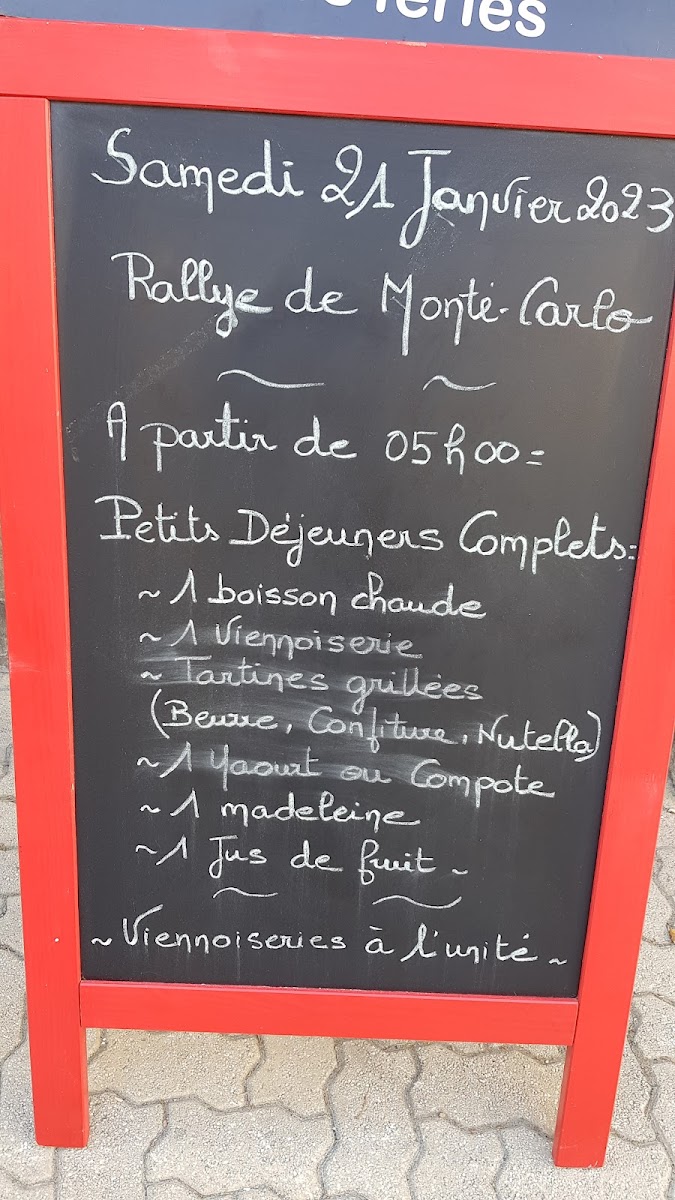 Samedi 21 Janvier 2023
Rallye de Monté-Carlo
A partir de 05h00=
Petits Déjeuners Complets:
~ 1 boisson chaude
~ 1 Viennoiserie
~ Tartines grillées
(Beurre, Confiture, Nutella)
~ 1 Yaourt ou Compote
~ 1 madeleine
~ 1 Jus de fruit ~
~ Viennoiseries à l'unité ~